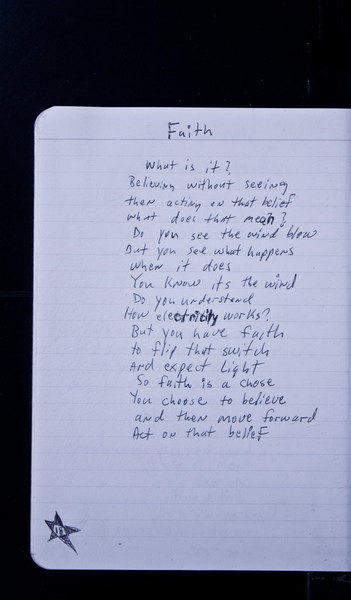 Faith
What is it?
Believing without seeing
then acting on that belief
what does that mean?
Do you see the wind blow
But you see what happens
when it does
You know its the wind
Do you understand
How electricity works?
But you have faith
to flip that switch
And expect Light
So faith is a chose
You choose to believe
and then move forward
Act on that belief